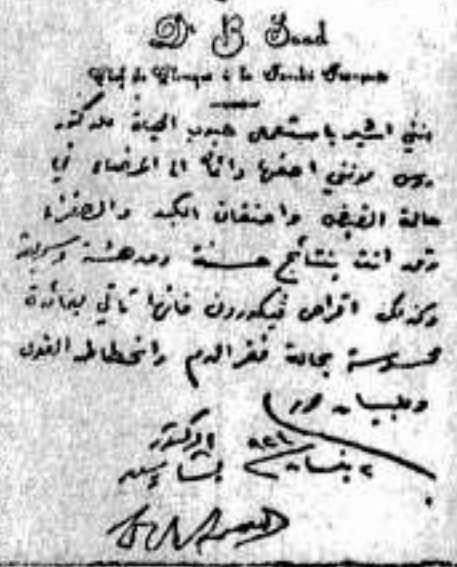 Dr B. Saad
Chef de Clinique à la Faculté Française
انني اشير باستعمال حبوب الحياة للدكتور
روس لانني اصفها دائما الى المرضاء في
حالة القبض واحتقان الكبد والصفراء
وقد اتت بنتائج حسنة ومدهشة وسريعة
وكذلك اقراص فيكورون فانها تأتي بفائدة
محسوسة بحالة فقر الدم وانحطاط القوى
الدكتور
نيسان